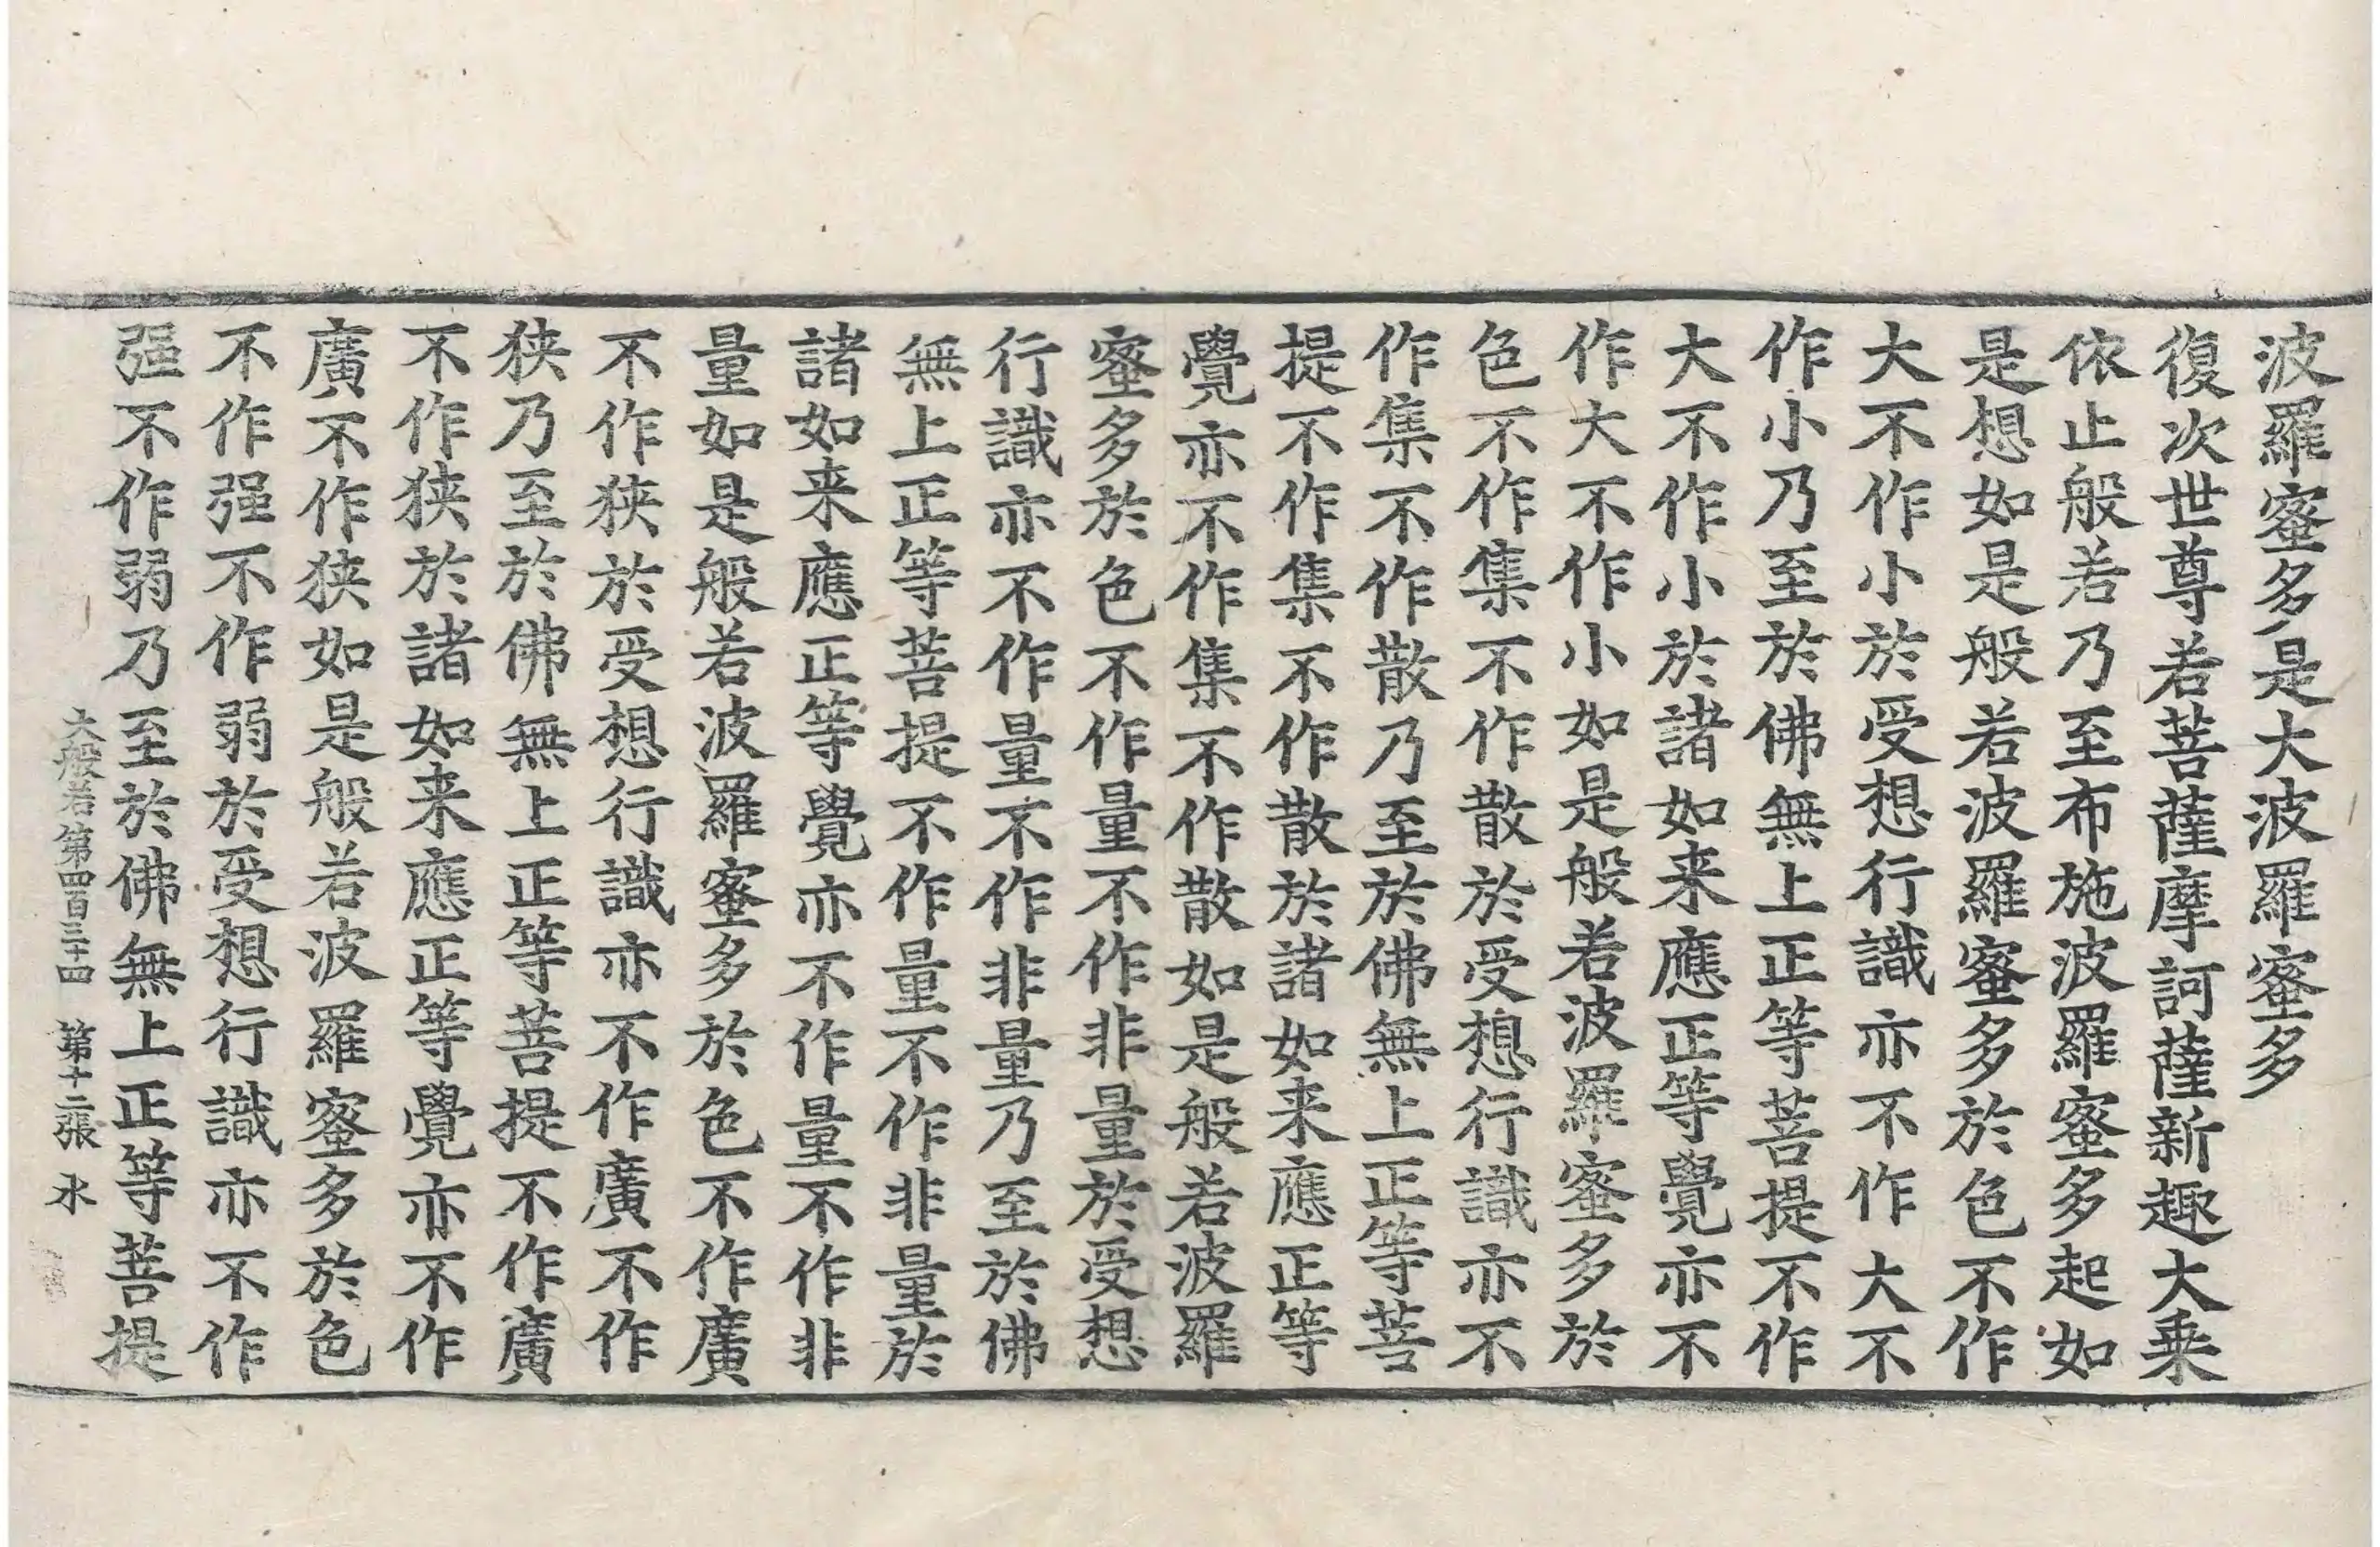 波羅蜜多是大波羅蜜多
復次世尊若菩薩摩訶薩新趣大乗
依止般若乃至布施波羅蜜多起如
是想如是般若波羅蜜多於色不作
大不作小於受想行識亦不作大不
作小乃至於佛無上正等菩提不作
大不作小於諸如来應正等覺亦不
作大不作小如是般若波羅蜜多於
色不作集不作散於受想行識亦不
作集不作散乃至於佛無上正等菩
提不作集不作散於諸如来應正等
覺亦不作集不作散如是般若波羅
蜜多於色不作量不作非量於受想
行識亦不作量不作非量乃至於佛
無上正等菩提不作量不作非量於
諸如来應正等覺亦不作量不作非
量如是般若波羅蜜多於色不作廣
不作狹於受想行識亦不作廣不作
狹乃至於佛無上正等菩提不作廣
不作狹於諸如来應正等覺亦不作
廣不作狹如是般若波羅蜜多於色
不作强不作弱於受想行識亦不作
强不作弱乃至於佛無上正等菩提
大般若第四百三十四 第十二張 水